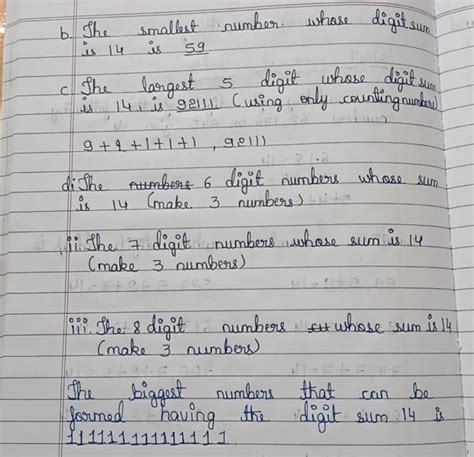 b. The smallest number whose digit sum
is 14 is 59
c. The largest 5 digit whose digit sum
is 14 is 92111 (using only counting numbers)
9+2+1+1+1, 92111
di. The numbers 6 digit numbers whose sum
is 14 (make 3 numbers)
ii. The 7 digit numbers whose sum is 14
(make 3 numbers)
iii. The 8 digit numbers whose sum is 14
(make 3 numbers)
The biggest numbers that can be
formed having the digit sum 14 is
11111111111111